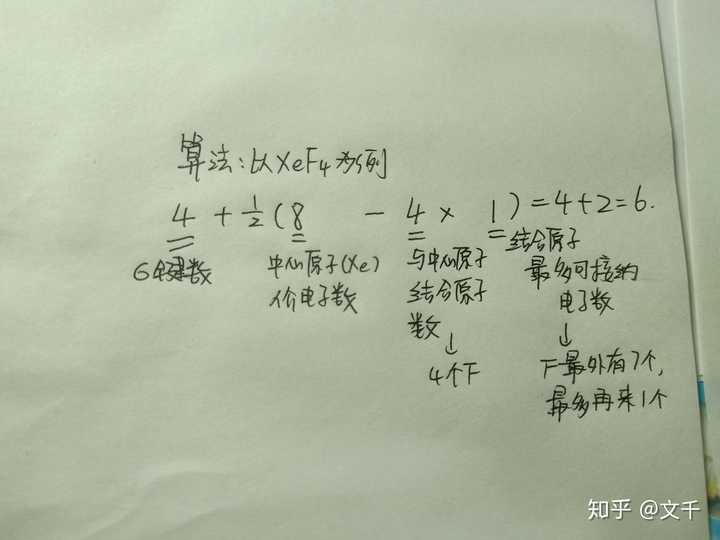 算法:以XeF4为例
4 + 1/2 (8 - 4 × 1) = 4+2=6.
σ键数
中心原子(Xe)
价电子数
与中心原子
结合原子
数
↓
4个F
结合原子
最多可接纳
电子数
↓
F最外有7个,
最多再来1个
知乎 @文千